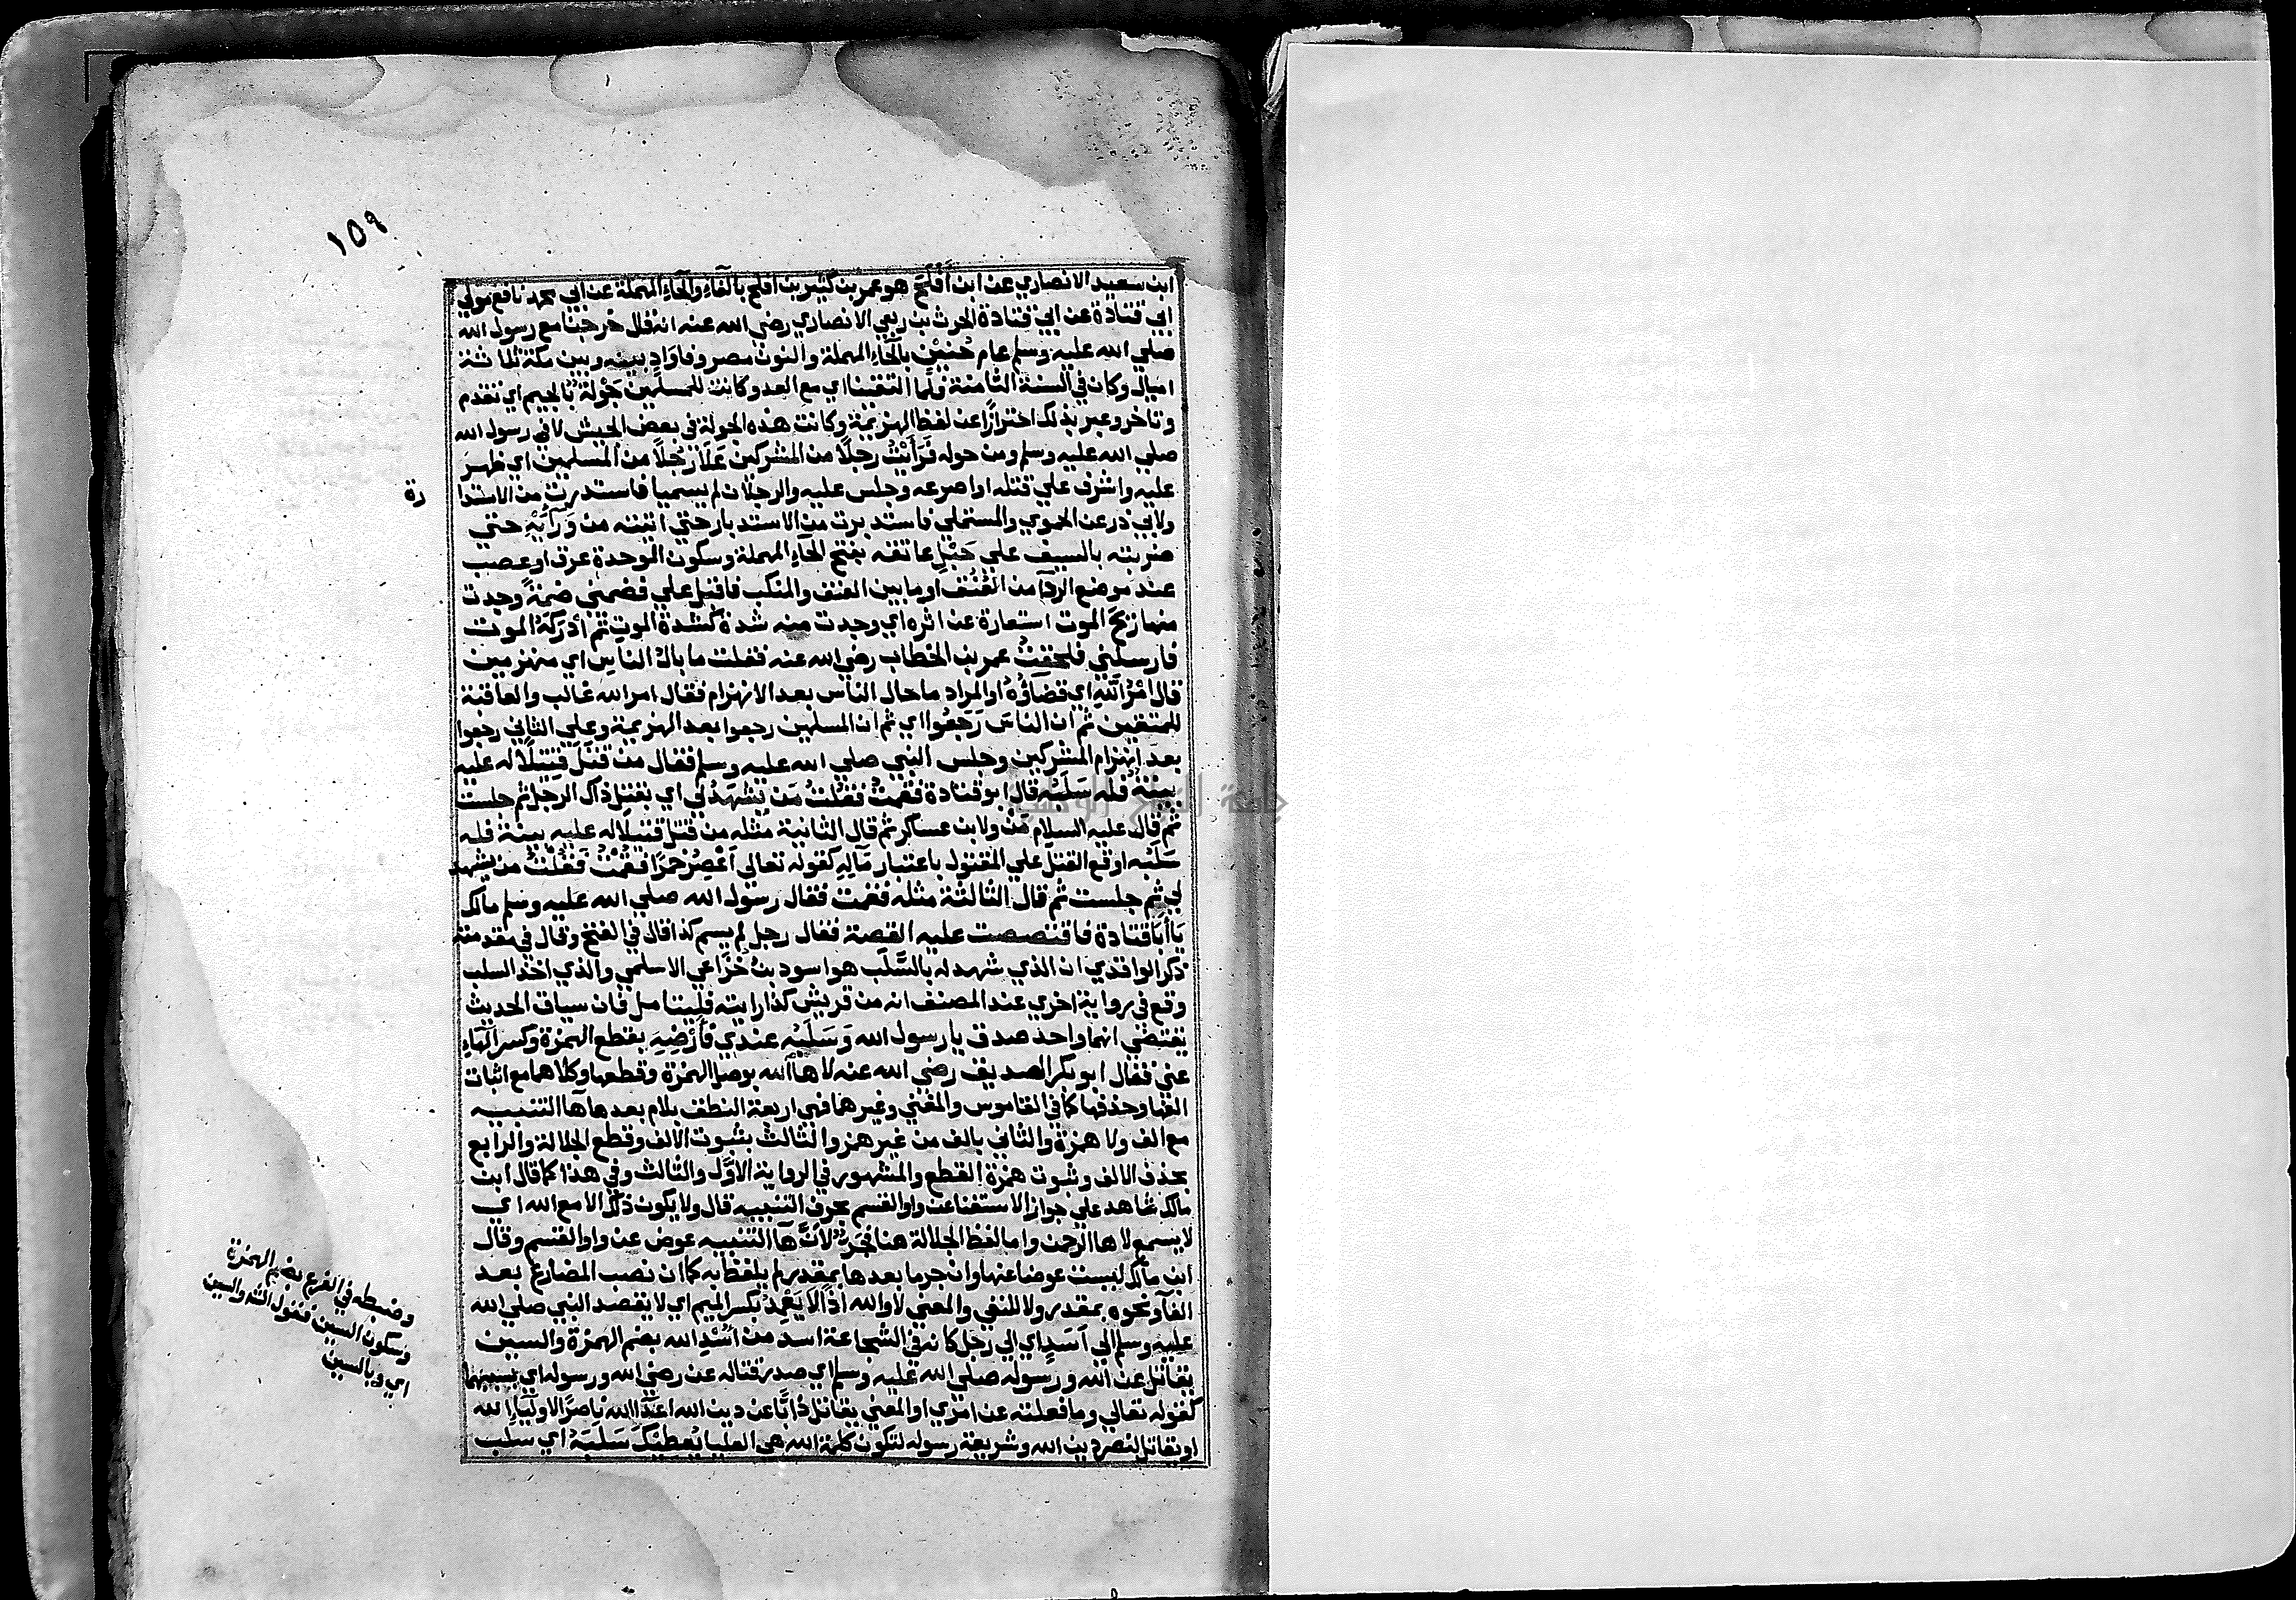 ١٥٩
ابن سعيد الانصاري عن ابن أفلح هو عمر بن كثير بن افلح بالفاء والحاء المهملة عن ابي محمد نافع مولي
ابي قتادة عن ابي قتادة الحرث بن ربعي الانصاري رضي الله عنه انه قال خرجنا مع رسول الله
صلي الله عليه وسلم عام حُنَيْنٍ بالحاء المهملة والنون مصروفا وادٍ بينه وبين مكة ثلاثة
اميال وكان في السنة الثامنة فلما التقينا اي مع العدو كانت للمسلمين جَوْلة بالجيم اي تقدم
وتاخر وعبر بذلك احترازًا عن لفظ الهزيمة وكانت هذه الجولة في بعض الجيش لا في رسول الله
صلي الله عليه وسلم ومن حوله فَرَأَيْتُ رجلًا من المشركين عَلَا رَجُلًا من المسلمين اي ظهر
عليه واشرف علي قتله او صرعه وجلس عليه والرجلان لم يسميا فاستدرت من الاستدا
رة
ولابي ذر عن الحموي والمستملي فاستدبرت من الاستدبار حتي اتيته من وَرَآئِهِ حتي
ضربته بالسيف علي حَبْلِ عاتقه بفتح الحآء المهملة وسكون الموحدة عرق او عصب
عند موضع الردآ من العُنُق او ما بين العنق والمنكب فاقبل علي فضمني ضمةً وجدت
منها رِيْحَ الموت استعارة عن اثره اي وجدت منه شدة كشدة الموت ثم أدْرَكَهُ الموت
فارسلني فلحقتُ عمر بن الخطاب رضي الله عنه فقلت ما بالُ الناس اي منهزمين
قال امْرُ اللهِ اي قضاؤُهُ او المراد ما حال الناس بعد الانهزام فقال امر الله غالب والعاقبة
للمتقين ثم ان الناسَ رَجَعُوا اي ثم ان المسلمين رجعوا بعد الهزيمة وعلي الثاني رجعوا
بعدَ انهزام المشركين وجلس النبي صلي الله عليه وسلم فقال من قتلَ قَتيلًا له عليه
بينةٌ فله سَلَبُه قال ابو قتادة فقمتُ فقُلتُ مَن يَشْهَدُ لي اي بقتلِ ذاك الرجل ثم جلست
ثم قال عليه السلام مَنْ ولابن عساكر ثم قال الثانية مثله من قتل قتيلا له عليه بينة فله
سَلَبُه اوقع القتل علي المقتول باعتبار مآلهِ كقوله تعالي اَعْصِرُ خَمْرًا فَقُمْتُ فَقُلْتُ من يشهد
لي ثم جلست ثم قال الثالثة مثله فقمت فقال رسول الله صلي الله عليه وسلم مالك
يَا أبَا قتادة فاقتصصت عليه القصة فقال رجل لم يسم كذا قال في الفتح وقال في مقدمته
ذكر الواقدي ان الذي شهد له بالسَّلَب هو اسود بنُ خُزَاعي الاسلمي والذي اخذ السلب
وقع في رواية اخري عند المصنف انه من قريش كذا رايته فليتامل فان سياق الحديث
يقتضي انهما واحد صدق يا رسول الله وَسَلَبُه عندي فأرْضِهِ بقطع الهمزة وكسر الهآء
عني فقال ابو بكر الصديق رضي الله عنه لاها الله بوصل الهمزة وقطعها وكلاهما مع اثبات
الفها وحذفها كما في القاموس والمغني وغيرهما فهي اربعة النطق بلام بعدها ها التنبيه
مع الف ولا همزة والثاني بالف من غير همز والثالث بثبوت الالف وقطع الجلالة والرابع
بحذف الالف وثبوت همزة القطع والمشهور في الرواية الاوّل والثالث وفي هذا كما قال ابن
مالك شاهد علي جواز الاستغنا عن واو القسم بحرف التنبيه قال ولا يكون ذلك الا مع الله اي
لا يسمع لاها الرحمن واما لفظ الجلالة هنا فجرٌ لانَّ هآ التنبيه عوض عن واو القسم وقال
ابن مالك ليست عوضا عنها وان جر ما بعدها بمقدر لم يلفظ به كما ان نصب المضارع بعد
الفآ ونحوه بمقدر ولا للنفي والمعني لا والله اذًا لَا يَعْمِدُ بكسر الميم اي لا يقصد النبي صلي الله
عليه وسلم الي اَسَدٍ اي الي رجل كانه في الشجاعة اسد من اُسُدِ الله بضم الهمزة والسين
وضبطه في الفرع بضم الهمزة
وسكون السين
اي وبالسين
يقاتل عن الله ورسوله صلي الله عليه وسلم اي صدر قتاله عن رضي الله ورسوله اي بسببهما
كقوله تعالي وما فعلته عن امري او المعني يقاتل ذابًّا عن دين الله اعدآ الله ناصرًا لاوليآء الله
او يقاتل لنصر دين الله وشريعة رسوله لتكون كلمة الله هي العليا يُعطيكَ سَلَبَهُ اي سلب